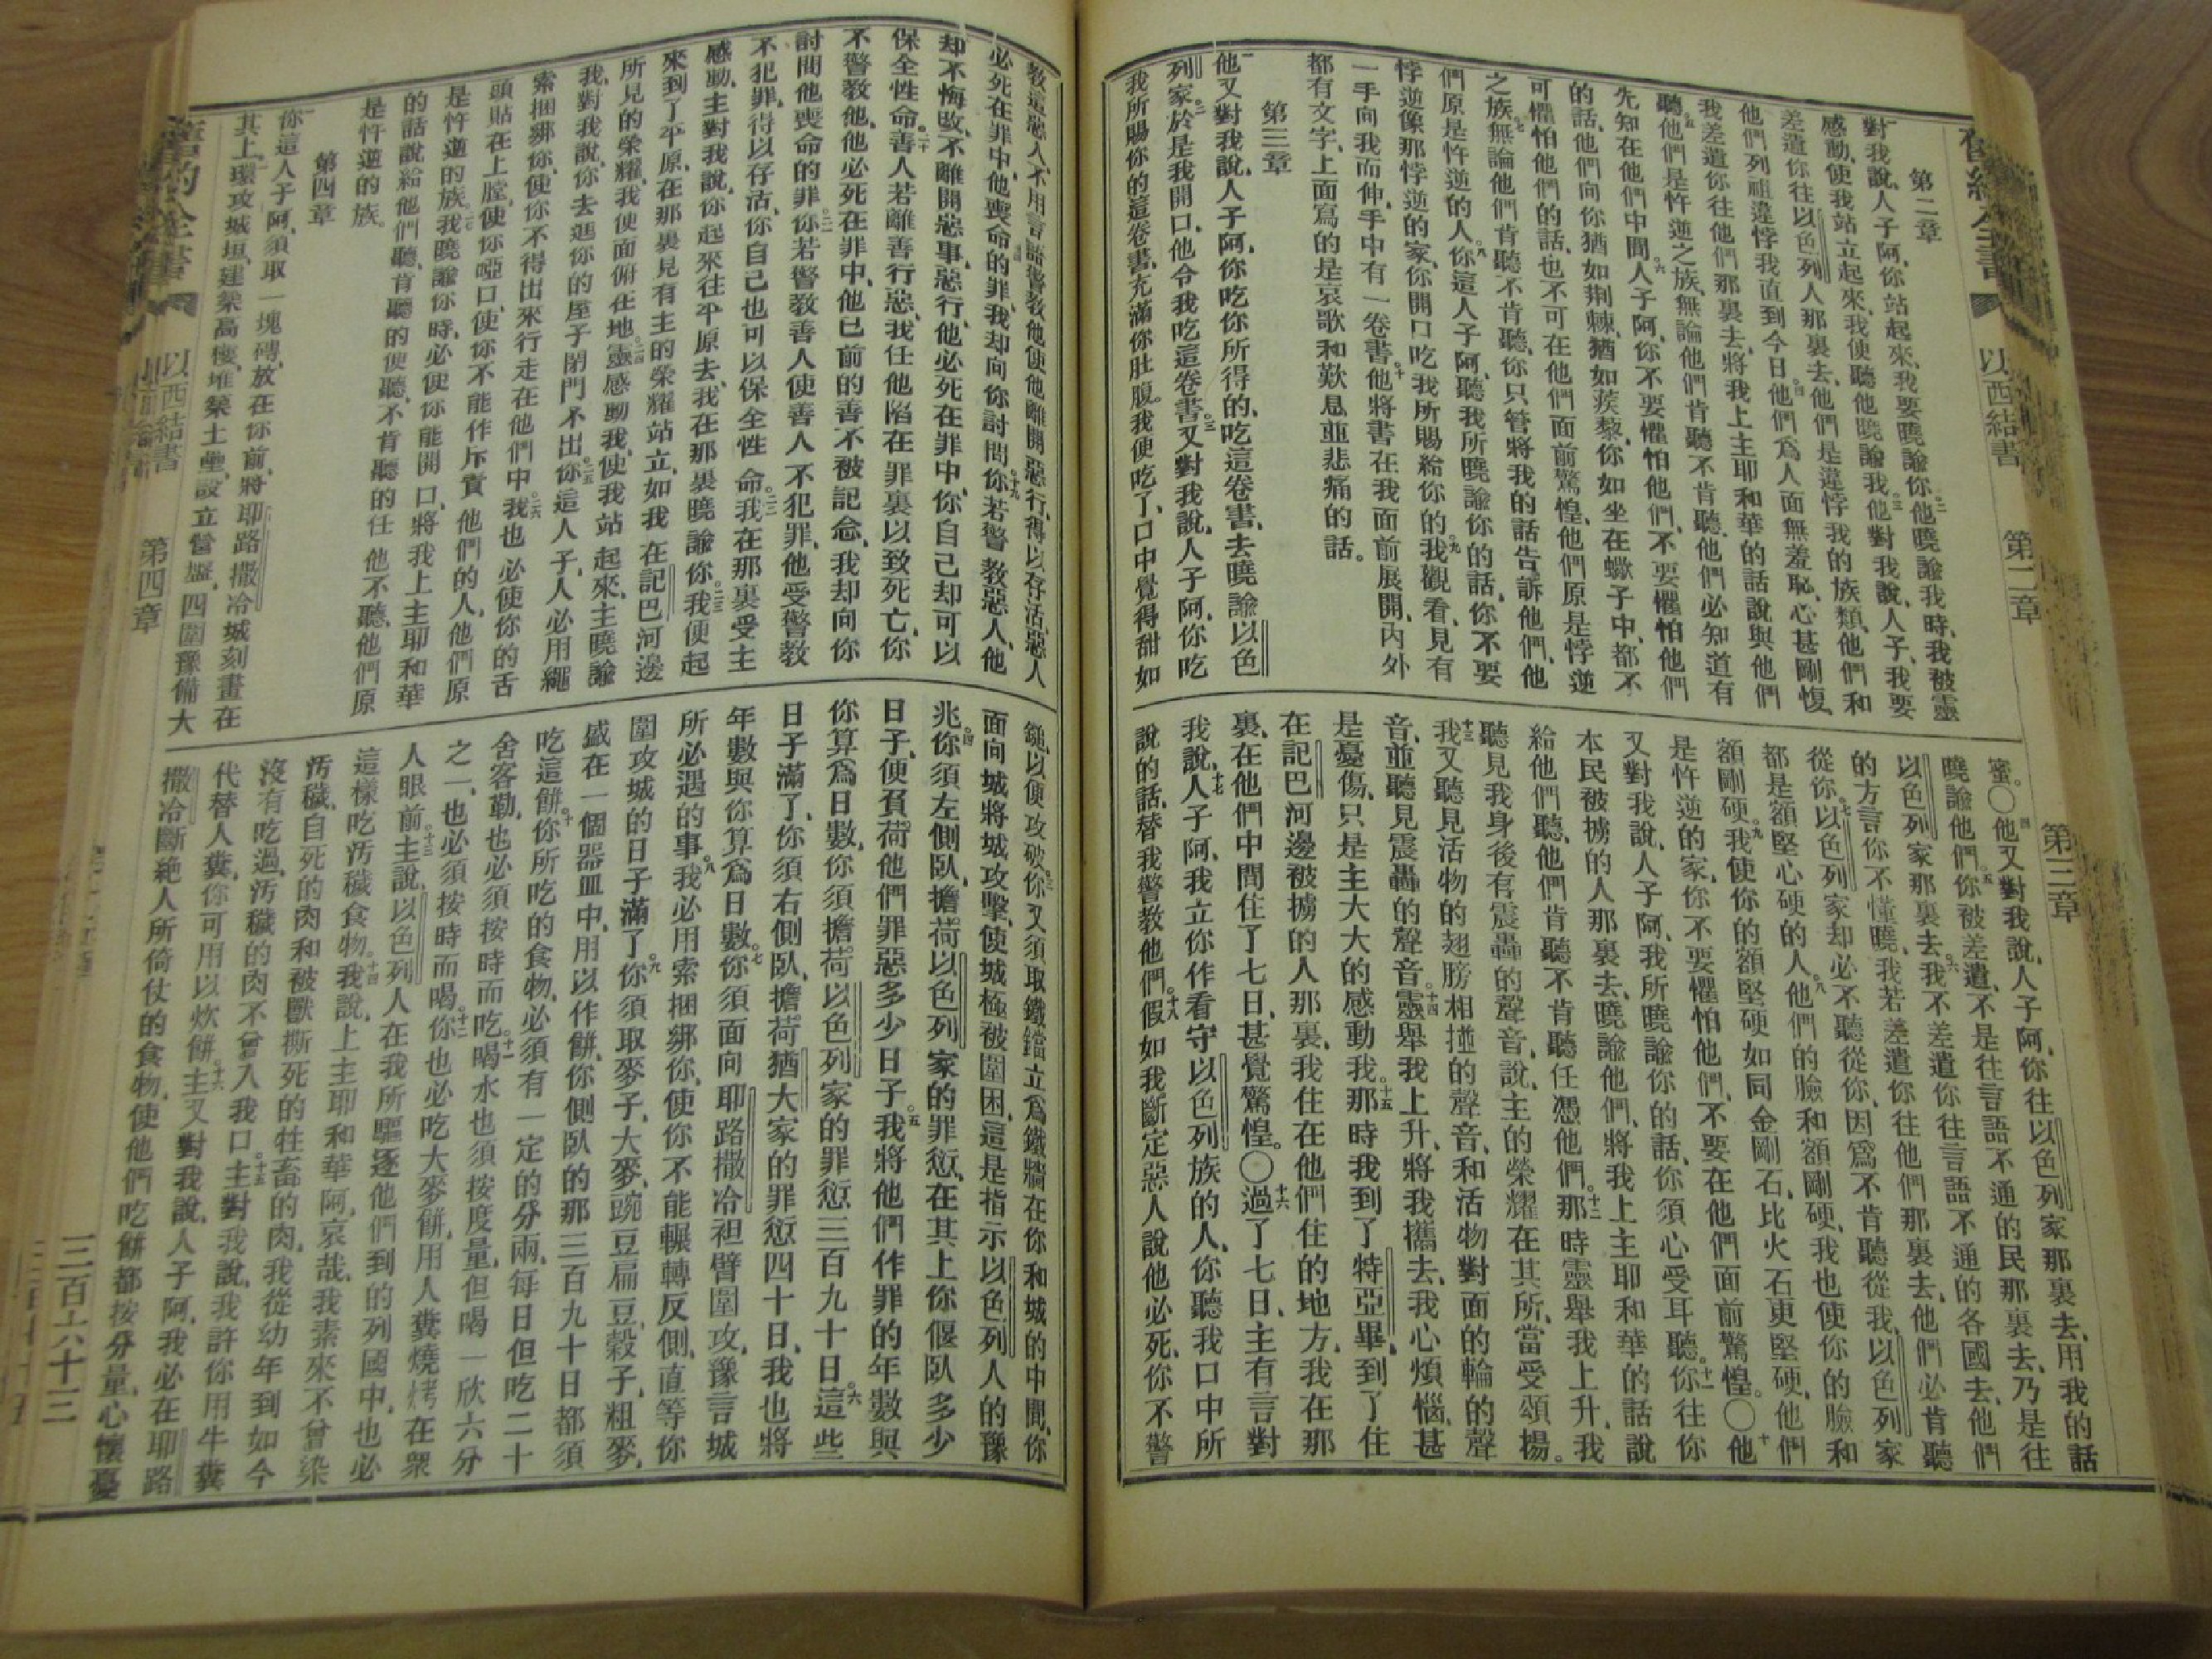 以西結書 第二章 第三章
第二章
對我說、人子阿、你站起來、我要曉諭你、他曉諭我時、我被靈
感動、使我站立起來、我便聽他曉諭我、他對我說、人子、我要
差遣你往以色列人那裏去、他們是違悖我的族類、他們和
他們列祖違悖我直到今日、他們爲人面無羞恥、心甚剛愎、
我差遣你往他們那裏去、將我上主耶和華的話說與他們
聽、他們是忤逆之族、無論他們肯聽不肯聽、他們必知道有
先知在他們中間、人子阿、你不要懼怕他們、不要懼怕他們
的話、他們向你猶如荆棘、猶如蒺藜、你如坐在蠍子中、都不
可懼怕他們的話、也不可在他們面前驚惶、他們原是悖逆
之族、無論他們肯聽不肯聽、你只管將我的話告訴他們、他
們原是忤逆的人、你這人子阿、聽我所曉諭你的話、你不要
悖逆像那悖逆的家、你開口吃我所賜給你的、我觀看、見有
一手向我而伸、手中有一卷書、他將書在我面前展開、內外
都有文字、上面寫的是哀歌和歎息並悲痛的話。
第三章
他又對我說、人子阿、你吃你所得的、吃這卷書、去曉諭以色
列家、於是我開口、他令我吃這卷書、又對我說、人子阿、你吃
我所賜你的這卷書、充滿你肚腹、我便吃了、口中覺得甜如
蜜。〇他又對我說、人子阿、你往以色列家那裏去、用我的話
曉諭他們、你被差遣、不是往言語不通的民那裏去、乃是往
以色列家那裏去、我不差遣你往言語不通的各國去、他們
的方言你不懂曉、我若差遣你往他們那裏去、他們必肯聽
從你、以色列家却必不聽從你、因爲不肯聽從我、以色列家
都是額堅心硬的人、他們的臉和額剛硬、我也使你的臉和
額剛硬、我使你的額堅硬如同金剛石、比火石更堅硬、他們
是忤逆的家、你不要懼怕他們、不要在他們面前驚惶。〇他
又對我說、人子阿、我所曉諭你的話、你須心受耳聽、你往你
本民被擄的人那裏去、曉諭他們、將我上主耶和華的話說
給他們聽、他們肯聽不肯聽任憑他們、那時靈舉我上升、我
聽見我身後有震轟的聲音、說、主的榮耀在其所、當受頌揚。
我又聽見活物的翅膀相撞的聲音、和活物對面的輪的聲
音、並聽見震轟的聲音、靈舉我上升、將我攜去、我心煩惱、甚
是憂傷、只是主大大的感動我、那時我到了特亞畢、到了住
在記巴河邊被擄的人那裏、我住在他們住的地方、我在那
裏、在他們中間住了七日、甚覺驚惶。〇過了七日、主有言對
我說、人子阿、我立你作看守以色列族的人、你聽我口中所
說的話、替我警教他們、假如我斷定惡人說他必死、你不警
教這惡人、不用言語警教他使他離開惡行、得以存活、惡人
必死在罪中、他喪命的罪、我却向你討問、你若警教惡人、他
却不悔改、不離開惡事、惡行、他必死在罪中、你自己却可以
保全性命、善人若離善行惡、我任他陷在罪裏以致死亡、你
不警教他、他必死在罪中、他已前的善不被記念、我却向你
討問他喪命的罪、你若警教善人使善人不犯罪、他受警教
不犯罪、得以存活、你自己也可以保全性命、我在那裏受主
感動、主對我說、你起來往平原去、我在那裏曉諭你、我便起
來到了平原、在那裏見有主的榮耀站立、如我在記巴河邊
所見的榮耀、我便面俯在地、靈感動我、使我站起來、主曉諭
我、對我說、你去進你的屋子閉門不出、你這人子、人必用繩
索捆綁你、使你不得出來行走在他們中、我也必使你的舌
頭貼在上膛、使你啞口、使你不能作斥責他們的人、他們原
是忤逆的族、我曉諭你時、必使你能開口、將我上主耶和華
的話說給他們聽、肯聽的便聽、不肯聽的任他不聽、他們原
是忤逆的族。
第四章
你這人子阿、須取一塊磚、放在你前、將耶路撒冷城刻畫在
其上、環攻城垣、建築高樓、堆築土壘、設立營盤、四圍豫備大
鎚、以便攻破、你又須取鐵鐺立爲鐵牆在你和城的中間、你
面向城將城攻擊、使城極被圍困、這是指示以色列人的豫
兆、你須左側臥、擔荷以色列家的罪愆、在其上你偃臥多少
日子、便負荷他們罪惡多少日子、我將他們作罪的年數與
你算爲日數、你須擔荷以色列家的罪愆三百九十日、這些
日子滿了、你須右側臥、擔荷猶大家的罪愆四十日、我也將
年數與你算爲日數、你須面向耶路撒冷袒臂圍攻、豫言城
所必遇的事、我必用索捆綁你、使你不能輾轉反側、直等你
圍攻城的日子滿了、你須取麥子、大麥、豌豆扁豆、穀子、粗麥、
盛在一個器皿中、用以作餅、你側臥的那三百九十日都須
吃這餅、你所吃的食物、必須有一定的分兩、每日但吃二十
舍客勒、也必須按時而吃、喝水也須按度量、但喝一欣六分
之一、也必須按時而喝、你也必吃大麥餅、用人糞燒烤在衆
人眼前、主說、以色列人在我所驅逐他們到的列國中、也必
這樣吃汚穢食物、我說、上主耶和華阿、哀哉、我素來不曾染
汚穢、自死的肉和被獸撕死的牲畜的肉、我從幼年到如今
沒有吃過、汚穢的肉不曾入我口、主對我說、我許你用牛糞
代替人糞、你可用以炊餅、主又對我說、人子阿、我必在耶路
撒冷斷絶人所倚仗的食物、使他們吃餅都按分量、心懷憂
以西結書 第四章 三百六十三